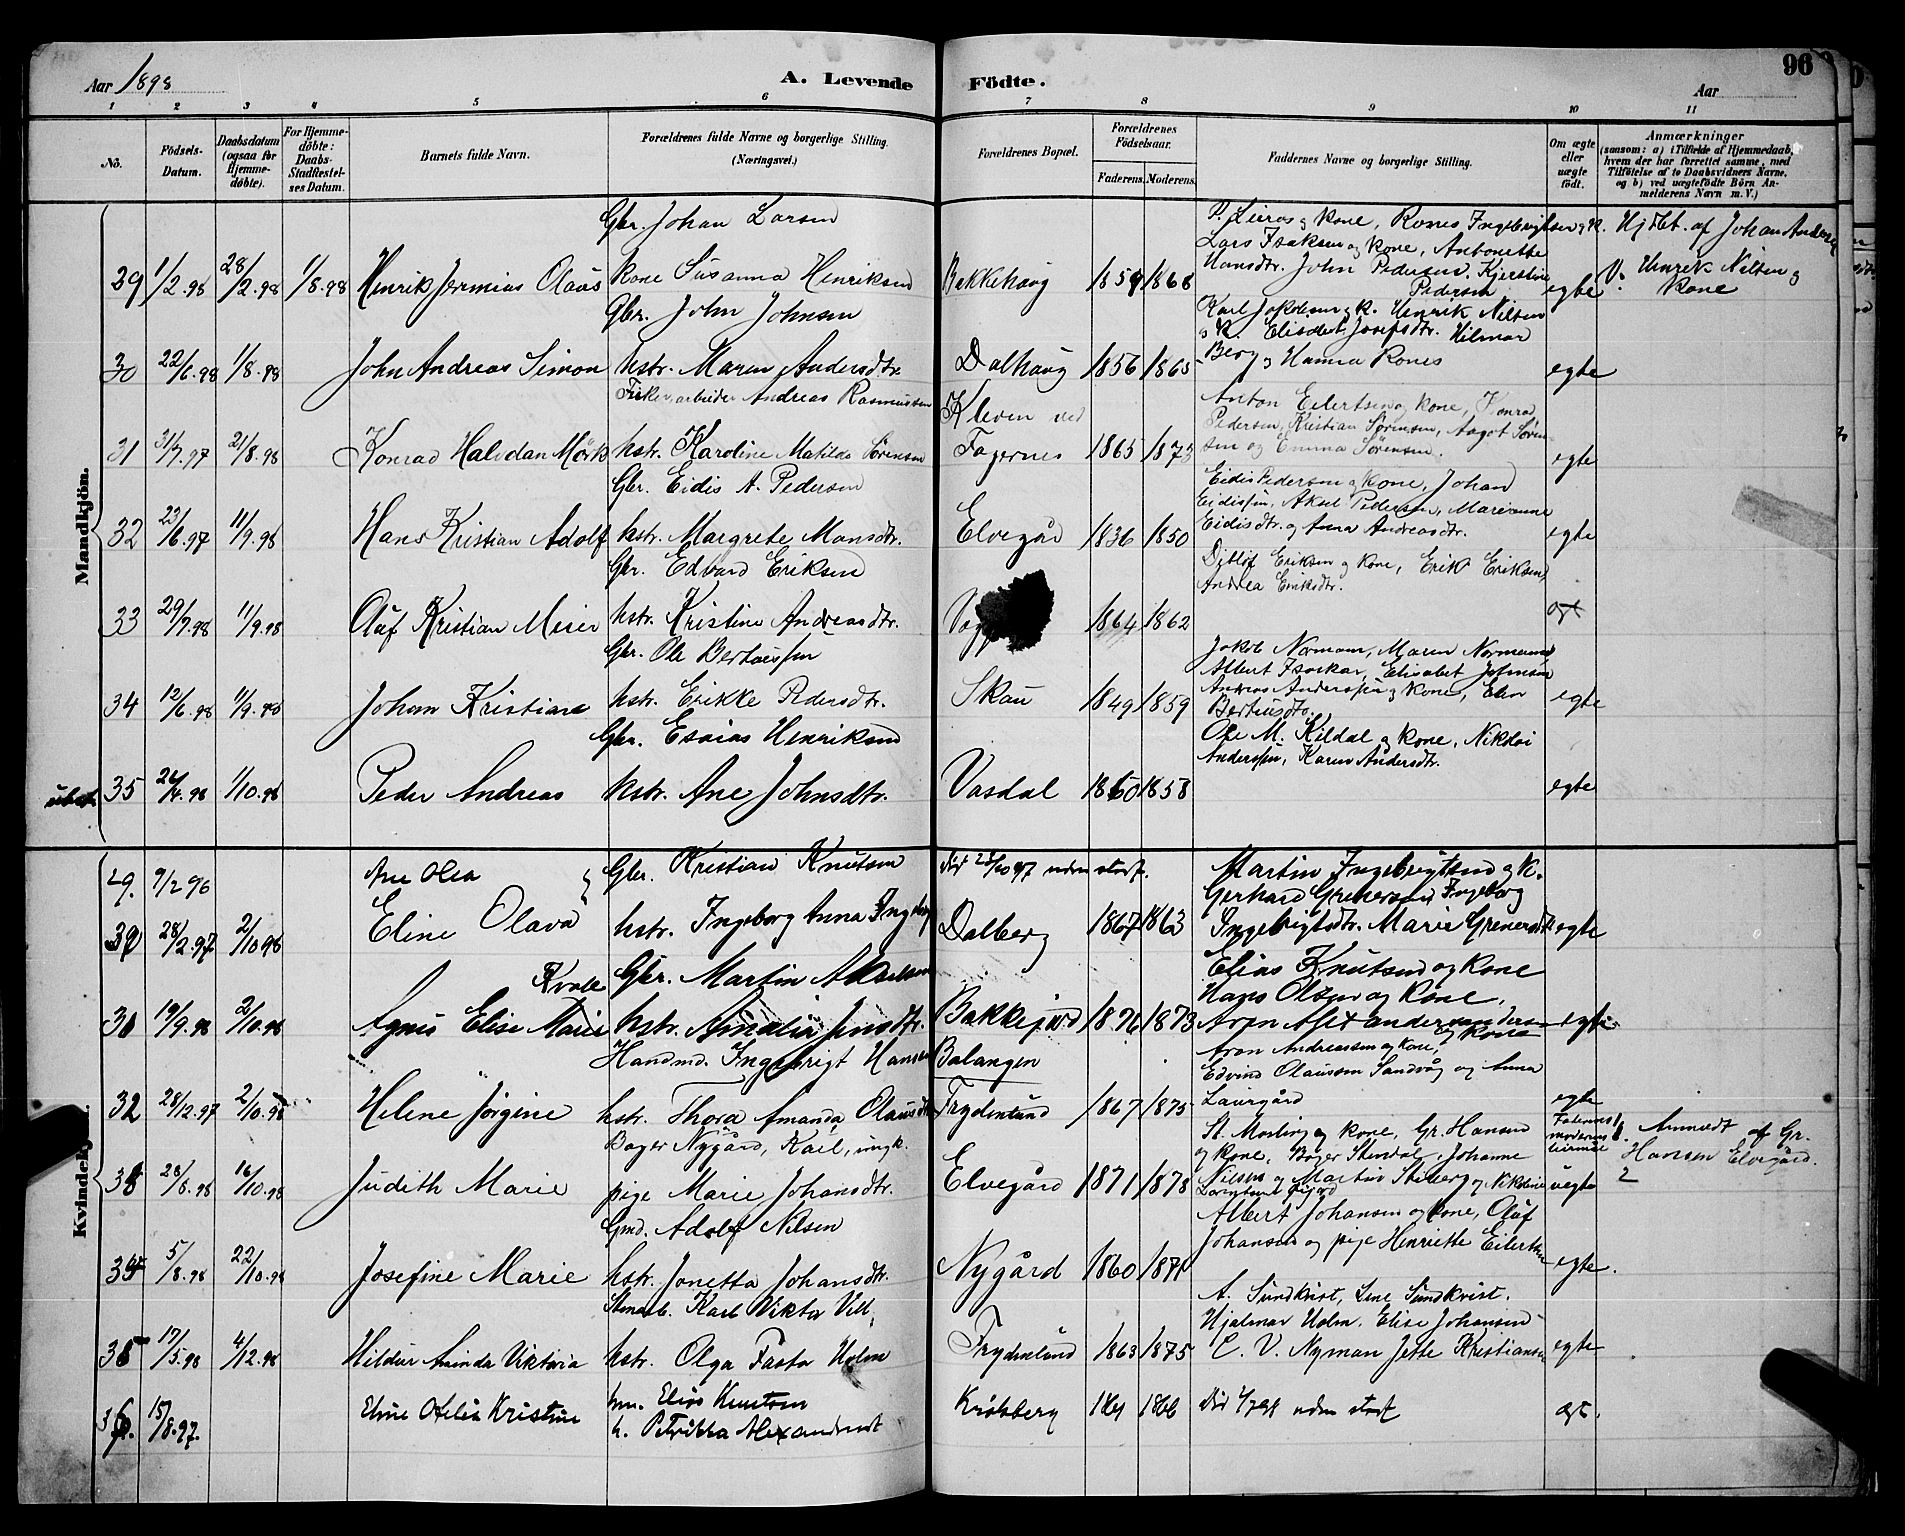 Aar 1898
A. Levende Födte.
Aar
96
1 2 3 4 5 6 7 8 9 10 11
No.
Födsels-Datum.
Daabsdatum (ogsaa for Hjemme-döbte).
For Hjemme-döbte: Daabs-Stadfæstel-ses Datum.
Barnets fulde Navn.
Forældrenes fulde Navne og borgerlige Stilling. (Næringsvei.)
Forældrenes Bopæl.
Forældrenes Födselsaar.
Faderens. Moderens.
Faddernes Navne og borgerlige Stilling.
Om ægte eller uægte födt.
Anmærkninger (saasom: a) i Tilfælde af Hjemmedaab, hvem der har forrettet samme, med Tilföielse af to Daabsvidners Navne, og b) ved uægtefödte Börn An-melderens Navn m. V.)
Mandkjön.
Gbr. Johan Larsen
og kone, Rones
Hjdbt. af Johan
29 1/2.98 28/2.98 1/8.98 Henrik Jermias Olaus
kone Susanna Henriksen
Bekkehaug 1859 1868
Lars Isaksen og kone, Antonette Hansdtr. John Pedersen. Kjerstine Pedersen
egte
V: Henrik Nilsen og kone
Gbr. John Johnsen
30 22/6.98 1/8.98 John Andreas Simon
hstr. Maren Andersdtr.
Dalhaug 1856 1865
Henrik Nilsen
Hilmar Berg og Hanna Rones
egte
arbeider Andreas Rasmussen
31 31/7.97 21/8.98 Konrad Halvdan Mørk
hstr. Karoline Matilde Sørensen
Kleven ved Fagernes 1865 1873
Anton Eilertsen og kone, Konrad Pedersen, Kristian Sørensen, Aagot Søren-sen og Emma Sørensen.
egte
Gbr. Eidis A. Pedersen
32 23/6.97 11/9.98 Hans Kristian Adolf
hstr. Margrete Monsdtr.
Elvegård 1836 1850
Eidis Pedersen og kone, Johan Eidissen, Aksel Pedersen, Marianne Eidisdtr. og Anna Andreasdtr.
egte
Gbr. Edvard Eriksen
33 29/7.98 11/9.98 Olaf Kristian Meier
hstr. Kristine Andreasdtr.
1864 1862
Ditlof Eriksen og kone, Erik Eriksen, Andrea Eriksdtr.
egt
Gbr. Ole Berteussen
34 12/6.98 11/9.98 Johan Kristian
hstr. Erikke Pedersdtr.
Skau 1849 1859
Jakob Normann, Maren Normann, Albert Elisabet Andreas Anderssen og kone, Elen Berteusdtr.
egte
Gbr. Esaias Henriksen
35 24/4.98 1/10.98 Peder Andreas
hstr. Ane Johnsdtr.
Vasdal 1860 1858
Ole M. Kildal og kone, Nikolai Anderssen, Karen Andersdtr.
egte
Kvindekjön.
29. 9/2 96 Ane Olea
Gbr. Kristian Knutsen
Død 25/10 97 uden stadf.
30 28/2.97 2/10.98 Eline Olava
hstr. Ingeborg Anna
Dalberg 1867 1863
Martin Ingebrigtsen og k. Gerhard Grenersen, Ingeborg Ingebrigtsdtr. Marie Grenersdtr.
egte
Kvale
Gbr. Martin Akselsen
31 19/9.98 2/10.98 Agnes Elise Marie
hstr. Amalia Jensdtr.
Bakkejord 1876 1873
Elias Knutsen og kone
Hans Olsen og kone, Aron Alexandersen og kone
egte
Handmd. Ingebrigt Hansen
Balangen
32 28/12.97 2/10.98 Helene Jørgine
hstr. Thora Amanda Olausdtr.
Frydenlund 1867 1875
Aron Andreassen og kone, Edvind Olaussen Sandvåg og Anna Laurgård
egte
Bager Nygård, Karl, ungk.
28/6.98 16/10.98 Judith Marie
pige Marie Johansdtr.
Elvegård 1871 1878
St. Mosling og kone, Gr. Hansen og kone, Bager Stendal, Johanne Nilsen og Martin
Faderens 1 moderens
uegte
Anmeldt af Gr. Hansen Elvegård.
2
Gmd. Adolf Nilsen
5/8.98 22/10.98 Josefine Marie
hstr. Jonetta Johansdtr.
Nygård 1860 1871
Albert Johansen og kone, Olaf Johansen og pige Henriette Eilertsen
egte.
Karl Viktor
17/5.98 4/12.98 Hildur Aminda Viktoria
hstr. Olga Fasta Holm
Frydenlund 1863 1875
A. Sundkvist, Lene Sundkvist. Hjalmar Holm. Elise Johansen C. V. Nyman Jette Kristiansen
egte
36 15/8.97. Eline Otelie Kristine
Elias Knutsen
h. Petrikka Alexandersdt
1866
Død uden stadf
egt.